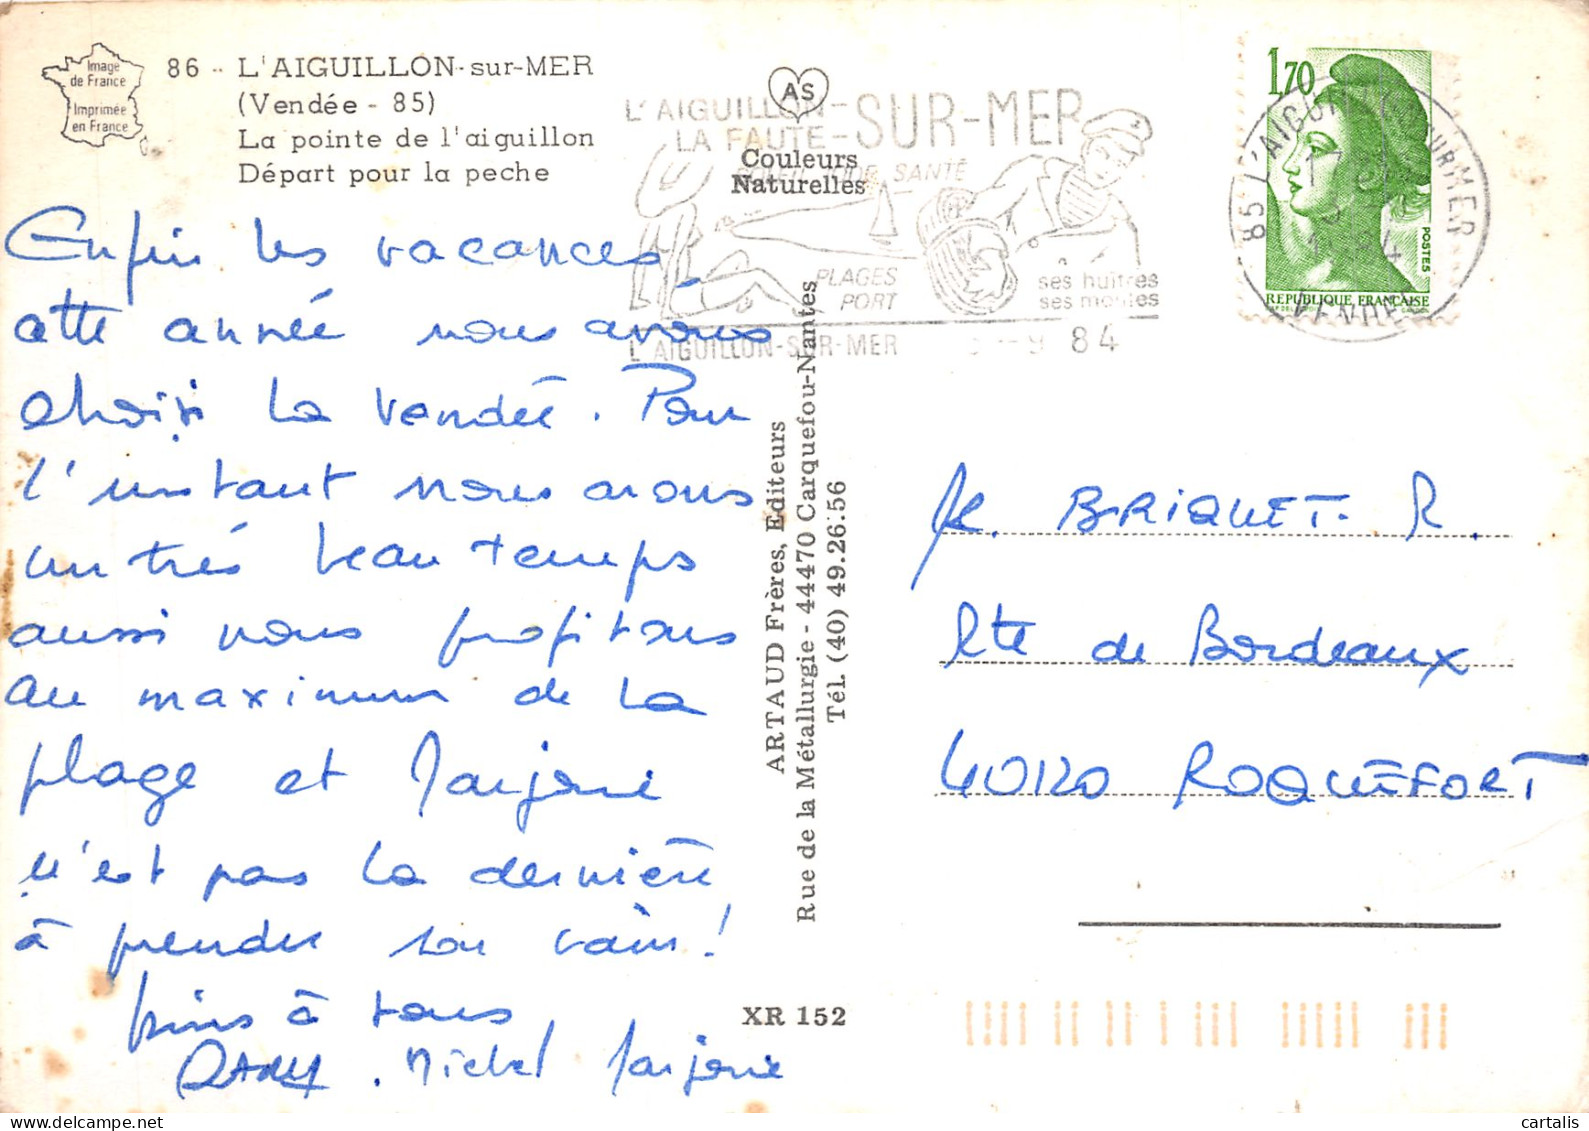 Image
de France
Imprimée
en France
86 - L'AIGUILLON-sur-MER
(Vendée - 85)
La pointe de l'aiguillon
Départ pour la peche
AS
Couleurs
Naturelles
L'AIGUILLON-
LA FAUTE-SUR-MER
SOLEIL IODE SANTE
PLAGES
PORT
ses huîtres
ses moules
L'AIGUILLON-SUR-MER -9 84
1,70
POSTES
REPUBLIQUE FRANCAISE
85 L'AIGUILLON SUR MER
VENDEE
Enfin les vacances,
cette année nous avons
choisi la Vendée. Pour
l'instant nous avons
un très beau temps
aussi nous profitons
au maximum de la
plage et Marjorie
n'est pas la dernière
à prendre son bain!
bises à tous
Michel Marjorie
ARTAUD Frères, Editeurs
Rue de la Métallurgie - 44470 Carquefou-Nantes
Tél. (40) 49.26.56
XR 152
BRIQUET. R.
Rte de Bordeaux
40120 ROQUEFORT
cartalis